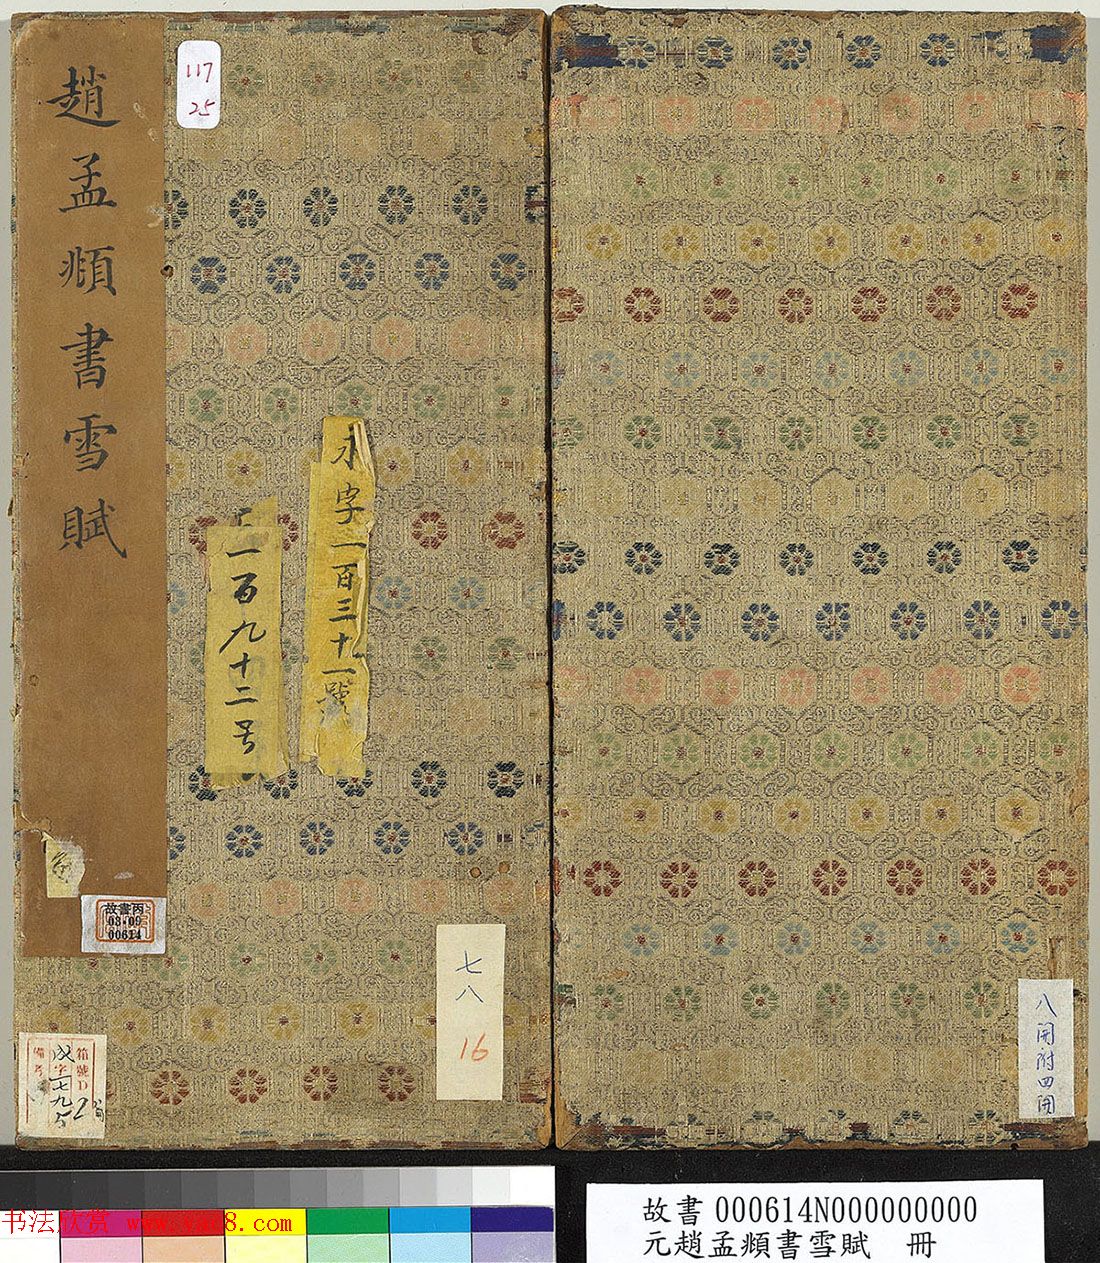 趙孟頫書雪賦
117
25
永字一百三十一號
一百九十二号
故書丙
08-09
00614
七八
16
箱號D
成字一七九号
備考
2
八開附四開
故書000614N000000000
元趙孟頫書雪賦 冊
书法欣赏 www.yac8.com